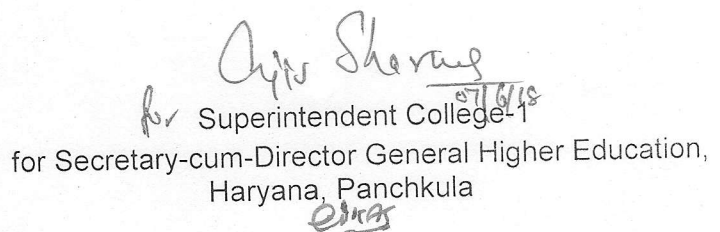 Sharma
07/6/18
for Superintendent College-1
for Secretary-cum-Director General Higher Education,
Haryana, Panchkula